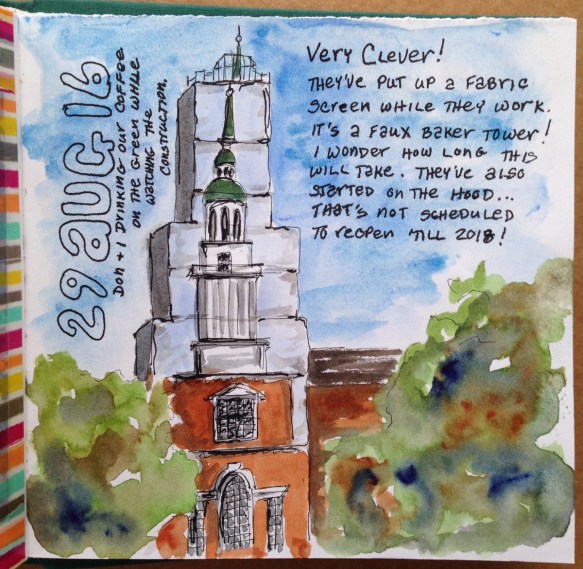 29 AUG 16
Don + I DRINKING OUR COFFEE
ON THE GREEN WHILE
WATCHING THE
CONSTRUCTION.
VERY CLEVER!
THEY'VE PUT UP A FABRIC
SCREEN WHILE THEY WORK.
IT'S A FAUX BAKER TOWER!
I WONDER HOW LONG THIS
WILL TAKE. THEY'VE ALSO
STARTED ON THE HOOD...
THAT'S NOT SCHEDULED
TO REOPEN 'TILL 2018!